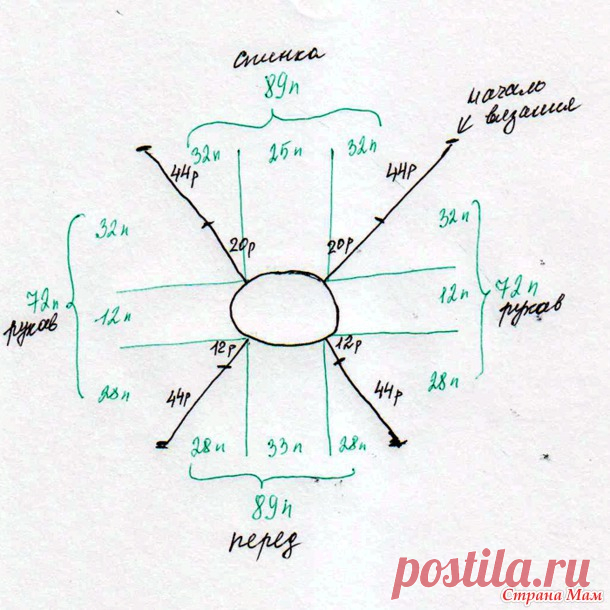 спинка
89п
начало
вязания
32п 25п 32п
44р 44р
20р 20р
32п 32п
72п
рукав
12п 12п
72п
рукав
12р 12р
28п 28п
44р 44р
28п 33п 28п
89п
перед
postila.ru
Страна Мам